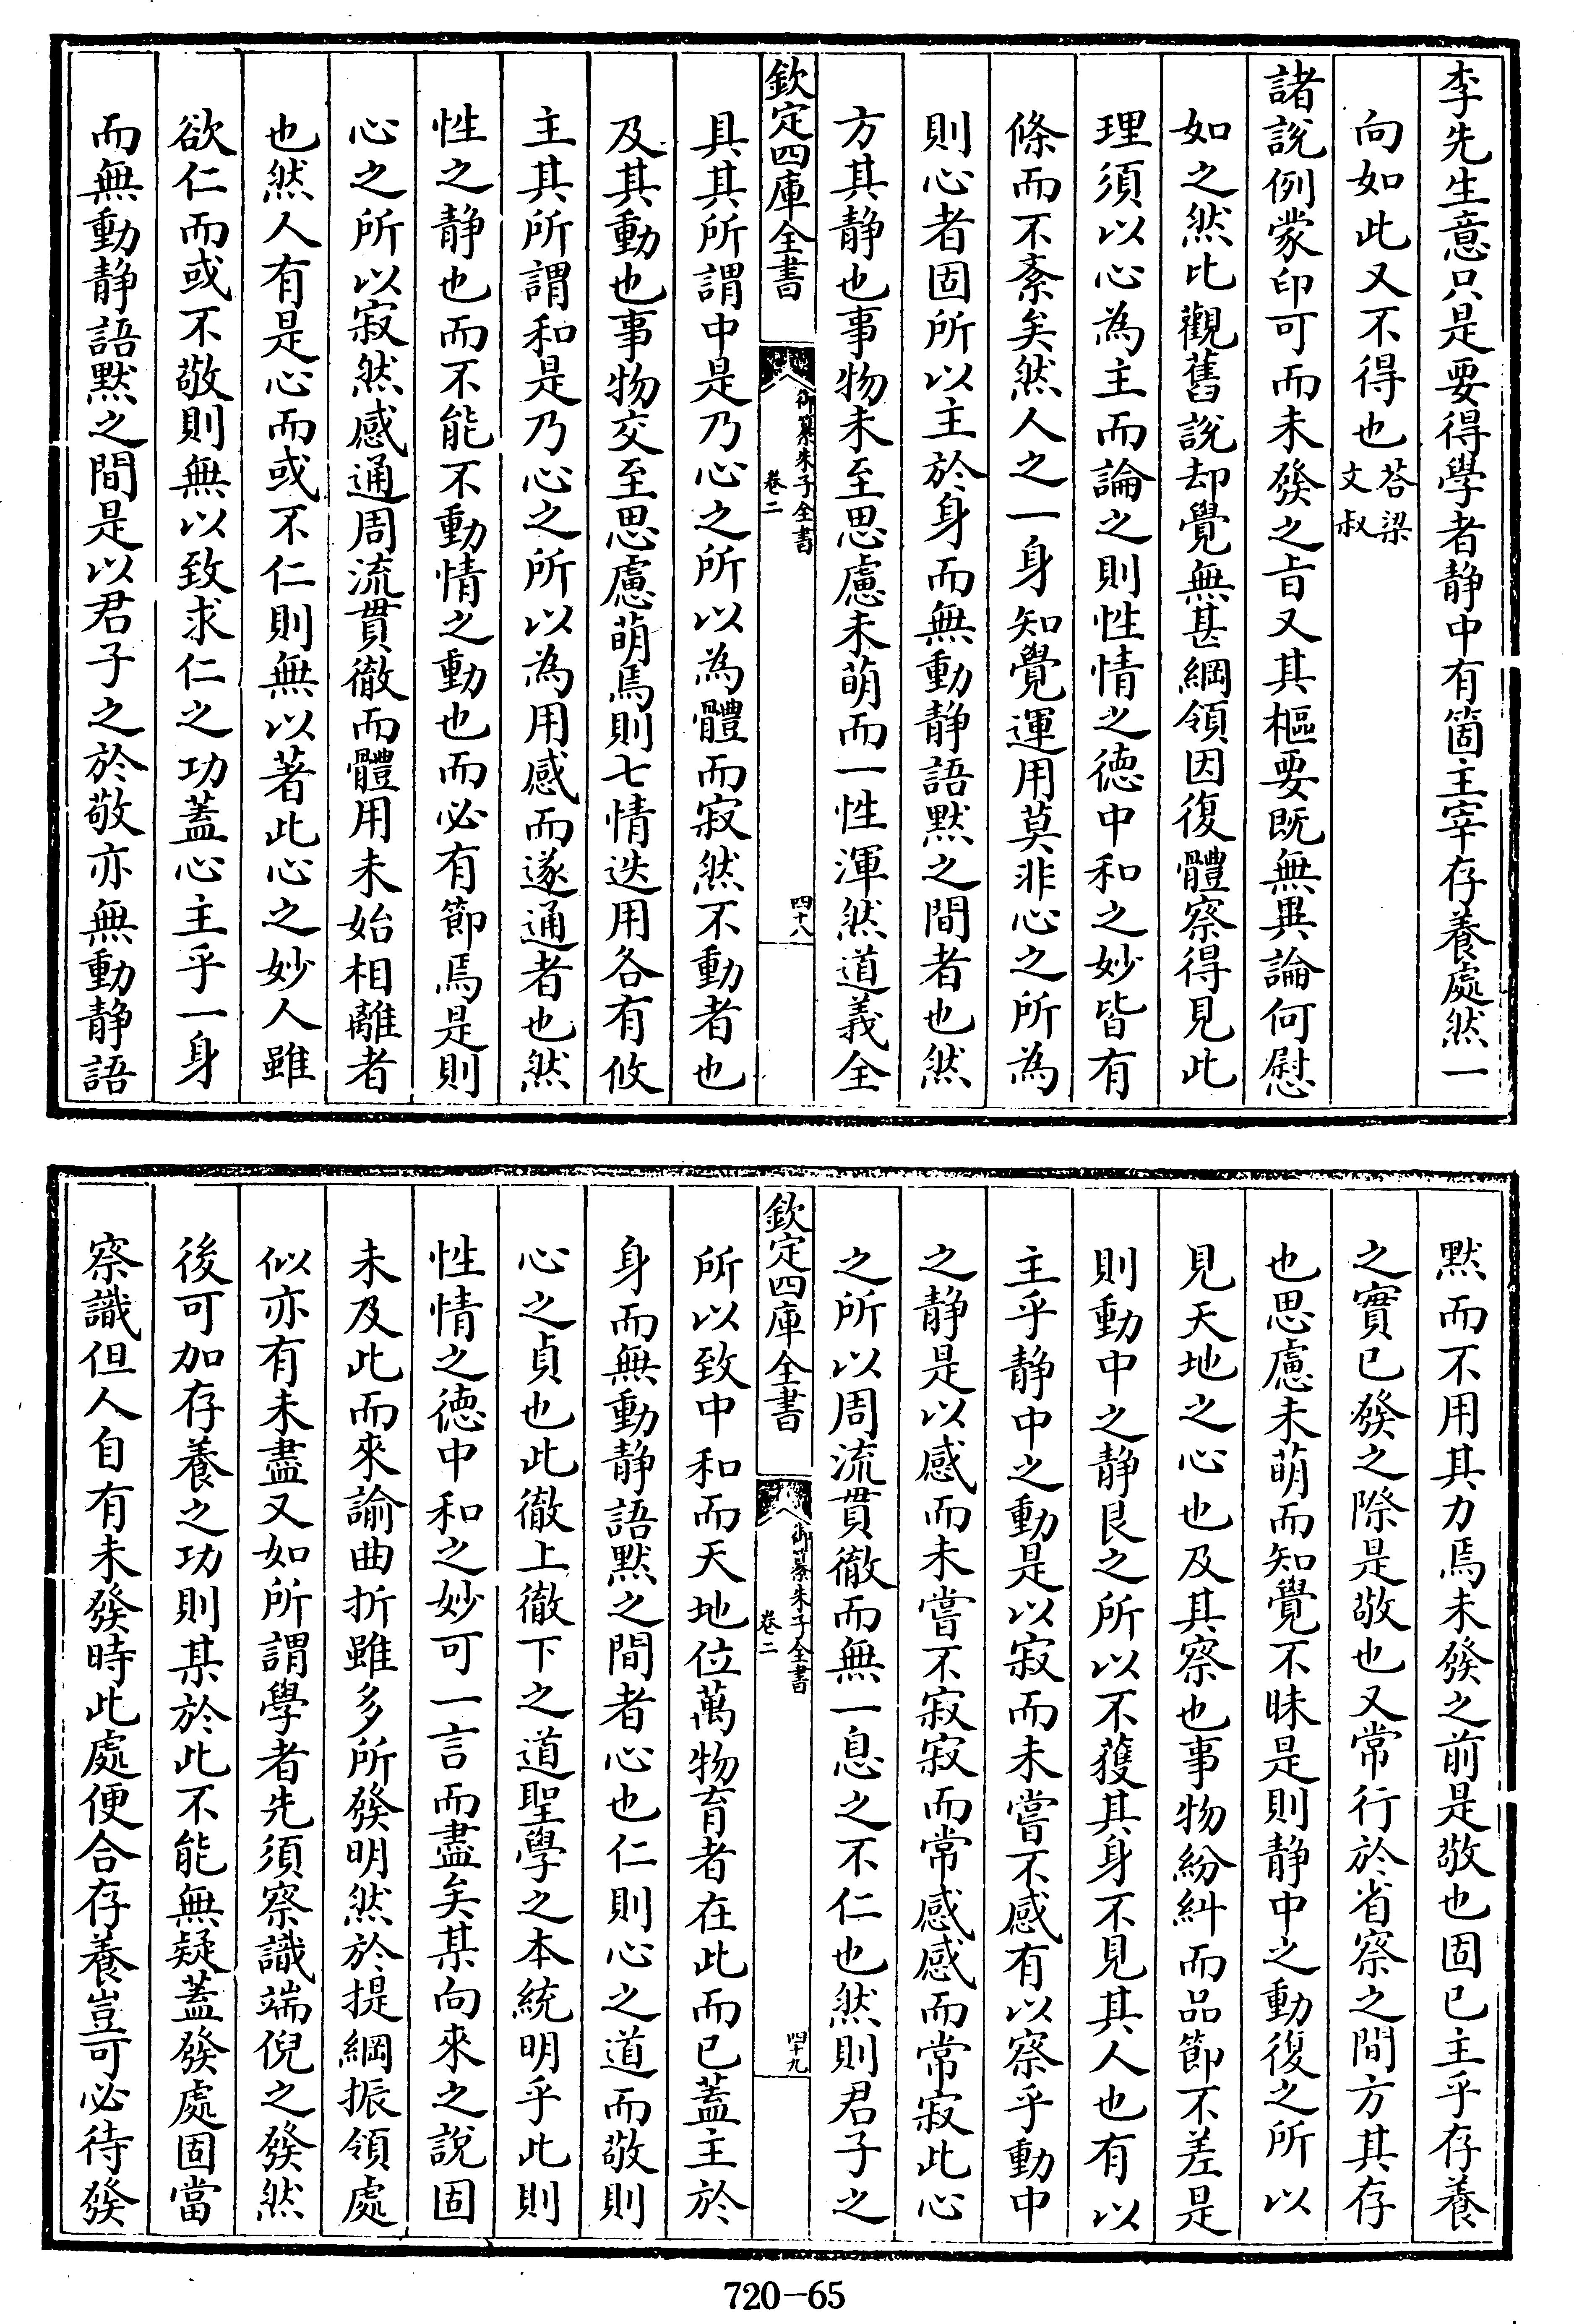 李先生意只是要得學者静中有箇主宰存養處然一
向如此又不得也答梁文叔
諸說例蒙印可而未發之旨又其樞要既無異論何慰
如之然比觀舊說却覺無甚綱領因復體察得見此
理須以心為主而論之則性情之德中和之妙皆有
條而不紊矣然人之一身知覺運用莫非心之所為
則心者固所以主於身而無動静語黙之間者也然
方其静也事物未至思慮未萌而一性渾然道義全
欽定四庫全書
御纂朱子全書
卷二
四十八
具其所謂中是乃心之所以為體而寂然不動者也
及其動也事物交至思慮萌焉則七情迭用各有攸
主其所謂和是乃心之所以為用感而遂通者也然
性之静也而不能不動情之動也而必有節焉是則
心之所以寂然感通周流貫徹而體用未始相離者
也然人有是心而或不仁則無以著此心之妙人雖
欲仁而或不敬則無以致求仁之功蓋心主乎一身
而無動静語黙之間是以君子之於敬亦無動静語
黙而不用其力焉未發之前是敬也固已主乎存養
之實已發之際是敬也又常行於省察之間方其存
也思慮未萌而知覺不昧是則静中之動復之所以
見天地之心也及其察也事物紛糾而品節不差是
則動中之静艮之所以不獲其身不見其人也有以
主乎静中之動是以寂而未嘗不感有以察乎動中
之静是以感而未嘗不寂寂而常感感而常寂此心
之所以周流貫徹而無一息之不仁也然則君子之
欽定四庫全書
御纂朱子全書
卷二
四十九
所以致中和而天地位萬物育者在此而已蓋主於
身而無動静語黙之間者心也仁則心之道而敬則
心之貞也此徹上徹下之道聖學之本統明乎此則
性情之德中和之妙可一言而盡矣某向來之說固
未及此而來諭曲折雖多所發明然於提綱振領處
似亦有未盡又如所謂學者先須察識端倪之發然
後可加存養之功則某於此不能無疑蓋發處固當
察識但人自有未發時此處便合存養豈可必待發
720-65